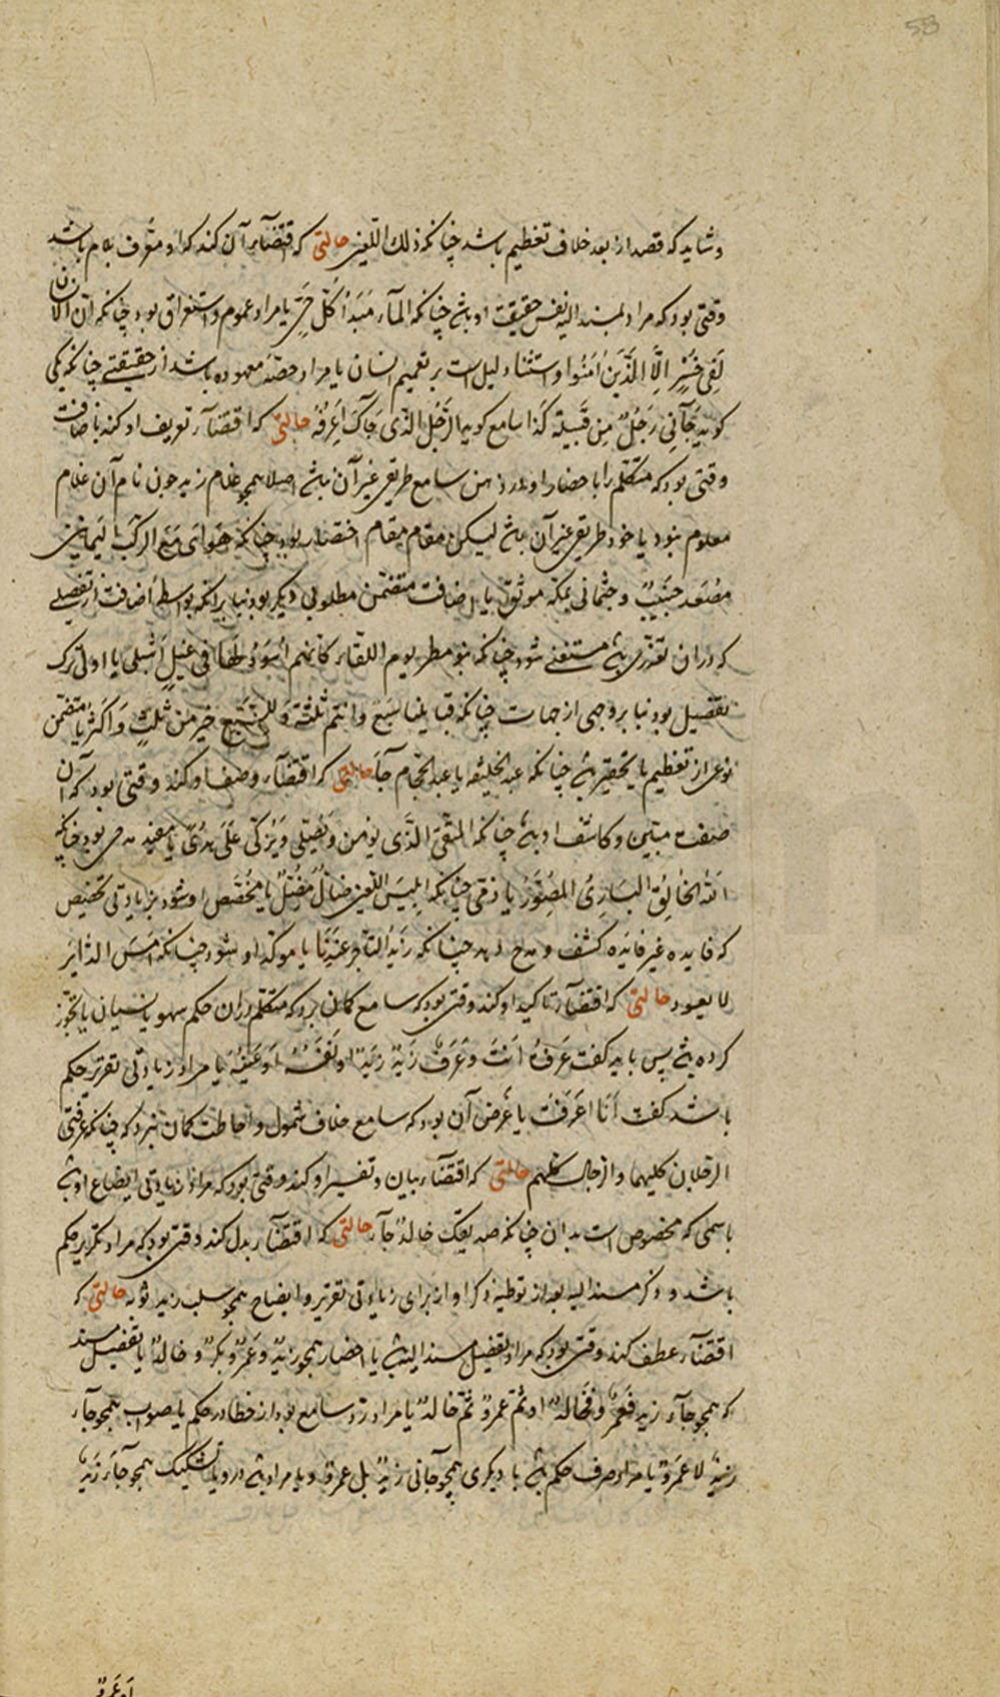 58
وشاید که قصد از بعد خلاف تعظیم باشد چنانکه ذلک اللعین حالتی که اقتضآء آن کند که او معرف بلام باشد
وقتی بود که مراد بمسند الیه نفس حقیقت او باشد چنانکه المآء مَبْدَأ کُلّ حَیّ یا مراد عموم و استغراق بود چنانکه ان الانسان
لَفِی خُسْرٍ اِلَّا الَّذِینَ اٰمَنُوا و استثناء دلیل است بر تعمیم انسان یا مراد حصهٔ معهوده باشد از حقیقتی چنانکه یکی
کوید جَآنِی رَجُلٌ مِن قَبِیلَة کَذا سامع کوید الرَّجُل الَّذی جَآکَ اَعرِفُهُ حالتی که اقتضآء تعریف او کند باضافت
وقتی بود که متکلم را باحضار او در ذهن سامع طریقی غیر آن نباشد اصلا همچو غلام زید چون نام آن غلام
معلوم نبود یا خود طریقی غیر آن باشد لیکن مقام مقام اختصار بود چنانکه هَوَایَ مَعَ الرکب الیَمانین
مُصْعِد جَنِیبٌ و جثمانی بمکة موثق یا اضافت متضمن مطلوبی دیکر بود بنا برانکه بواسطهٔ اضافت از تفصیلی
که دران تعذر باشد مستغنی شود چنانکه بنو مطر یوم اللقاء کانهم اُسُودٌ لَها فی غیلِ اَشبلی یا اولی ترک
تفصیل بود بنا بر وجهی از جهات چنانکه قبایلنا سبع وانتم ثلثة وللسبع خیر من ثلثٍ وَاکثر یا متضمن
نوعی از تعظیم یا تحقیر باشد چنانکه عبد الخلیفه یا عبد الحجام جآء حالتی که اقتضآء وصف او کند وقتی بود که آن
صفت مبین و کاشف او باشد چنانکه المتقی الذی یؤمن ویُصلّی ویُزکّی عَلَی هُدًی یا مفید مدحی بود چنانکه
اللّٰه الخالِقُ البَارِئُ المُصَوِّرُ یا ذمی چنانکه اِبْلِیسَ اللعین ضالٌ مُضِلٌّ یا مُخَصِّص او شود بزیادتی تخصیص
که فایده غیر فایده کشف و مدح دهد چنانکه زَیدٌ التاجر عندنا یا موکد او شود چنانکه اَمسِ الدّابِر
لا یعود حالتی که اقتضآء تاکید او کند وقتی بود که سامع کمان برد که متکلم دران حکم سهو یا نسیان یا تجوز
کرده باشد پس باید کفت عَرَفْتُ اَنتَ وعَرَفَ زَیدٌ زَیدٌ او نَفْسُهُ اَوعَینُهُ یا مراد زیادتی تقریر حکم
باشد کفت اَنَا اعرَفتُ یا غرض آن بود که سامع خلاف شمول و احاطت کمان نبرد که چنانکه عرفنی
الرجلان کلیهما والرجال کلهم حالتی که اقتضآء بیان و تفسیر او کند وقتی بود که مراد زیادتی ایضاح او باشد
باسمی که مخصوص است بدان چنانکه صدیقک خالدٌ جآء حالتی که اقتضآء بدل کند وقتی بود که مراد تکریر حکم
باشد و ذکر مسند الیه بعد از توطیهٔ ذکر او از برای زیادتی تقریر و ایضاح همچو سلب زید ثوبه حالتی که
اقتضآء عطف کند وقتی بود که مراد تفصیل مسند الیه باشد یا اختصار همچو زیدٌ وعَمرٌو وبکرٌ وخالدٌ یا تفصیل مسند
که همچو جآء زید فعَمرٌو فخالدٌ او ثم عمرو ثم خالدٌ یا مراد ردّ سامع بود از خطا در حکم یا صواب همچو جآء
زیدٌ لا عَمرو یا مراد صرف حکم باشد با دیکری همچو جآنی زیدٌ بل عمرو و یا مراد باشد درو یا تشکیک همچو جآءَ زَیدٌ
اَو عَمرو